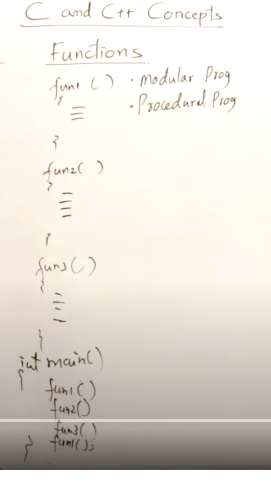 C and C++ Concepts
Functions
fun1 ( ) • Modular Prog
{ • Procedural Prog
}
fun2( )
{
}
fun3( )
{
}
int main()
{
fun1( )
fun2()
fun3( )
} fun1();